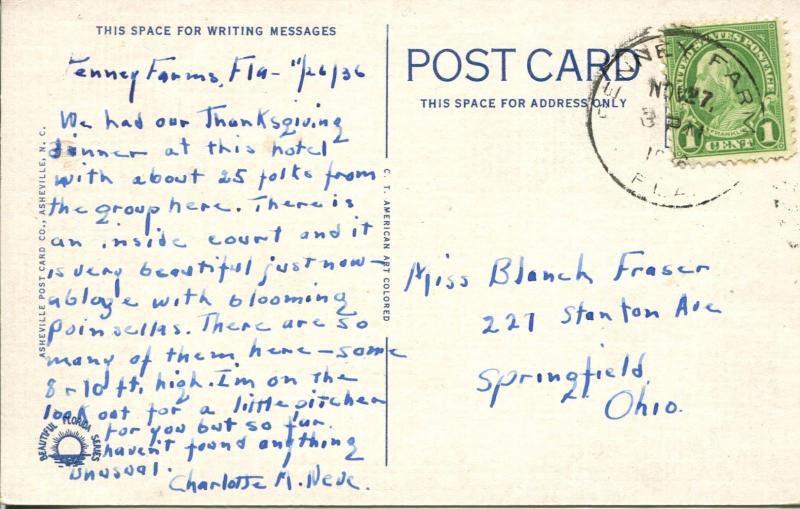 THIS SPACE FOR WRITING MESSAGES
Penney Farms, Fla - 11/26/36
We had our Thanksgiving
dinner at this hotel
with about 25 folks from
the group here. There is
an inside court and it
is very beautiful just now -
ablaze with blooming
poinsettas. There are so
many of them here - some
8 - 10 ft. high. I'm on the
look out for a little pitcher
for you but so far
haven't found anything
unusual.
Charlotte M. Neve.
ASHEVILLE POST CARD CO., ASHEVILLE, N. C.
BEAUTIFUL FLORIDA SERIES
C. T. AMERICAN ART COLORED
POST CARD
THIS SPACE FOR ADDRESS ONLY
FARMS
NOV 27
3 PM
FLA.
UNITED STATES POSTAGE
FRANKLIN
1 CENT 1
Miss Blanch Fraser
227 Stanton Ave
Springfield,
Ohio.